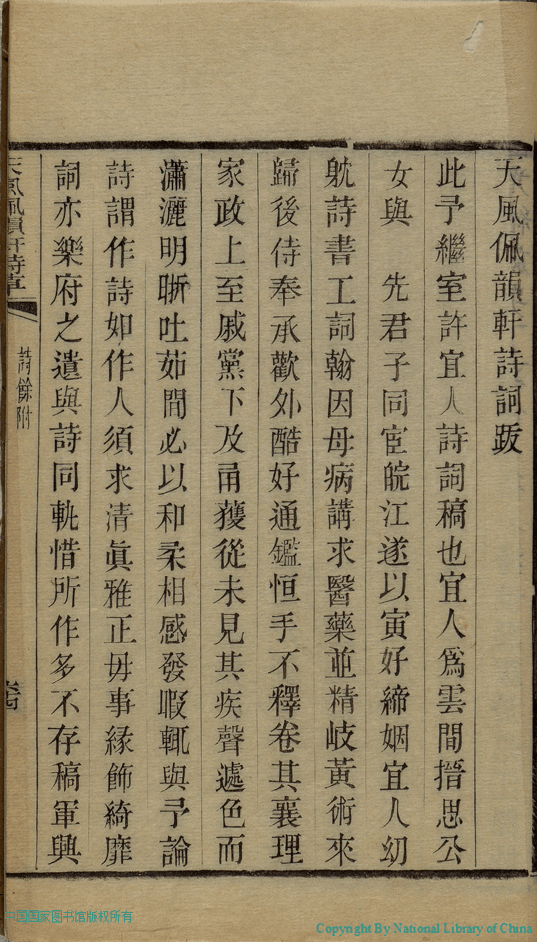 天風佩韻軒詩詞跋
此予繼室許宜人詩詞稿也宜人爲雲間搢思公
女與　先君子同宦皖江遂以寅好締姻宜人幼
躭詩書工詞翰因母病講求醫藥並精岐黃術來
歸後侍奉承歡外酷好通鑑恒手不釋卷其襄理
家政上至戚黨下及甬獲從未見其疾聲遽色而
瀟灑明晰吐茹間必以和柔相感發暇輒與予論
詩謂作詩如作人須求清眞雅正毋事緣飾綺靡
詞亦樂府之遺與詩同軌惜所作多不存稿軍興
天風佩韻軒詩草
詩餘附
中国国家图书馆版权所有
Copyright By National Library of China